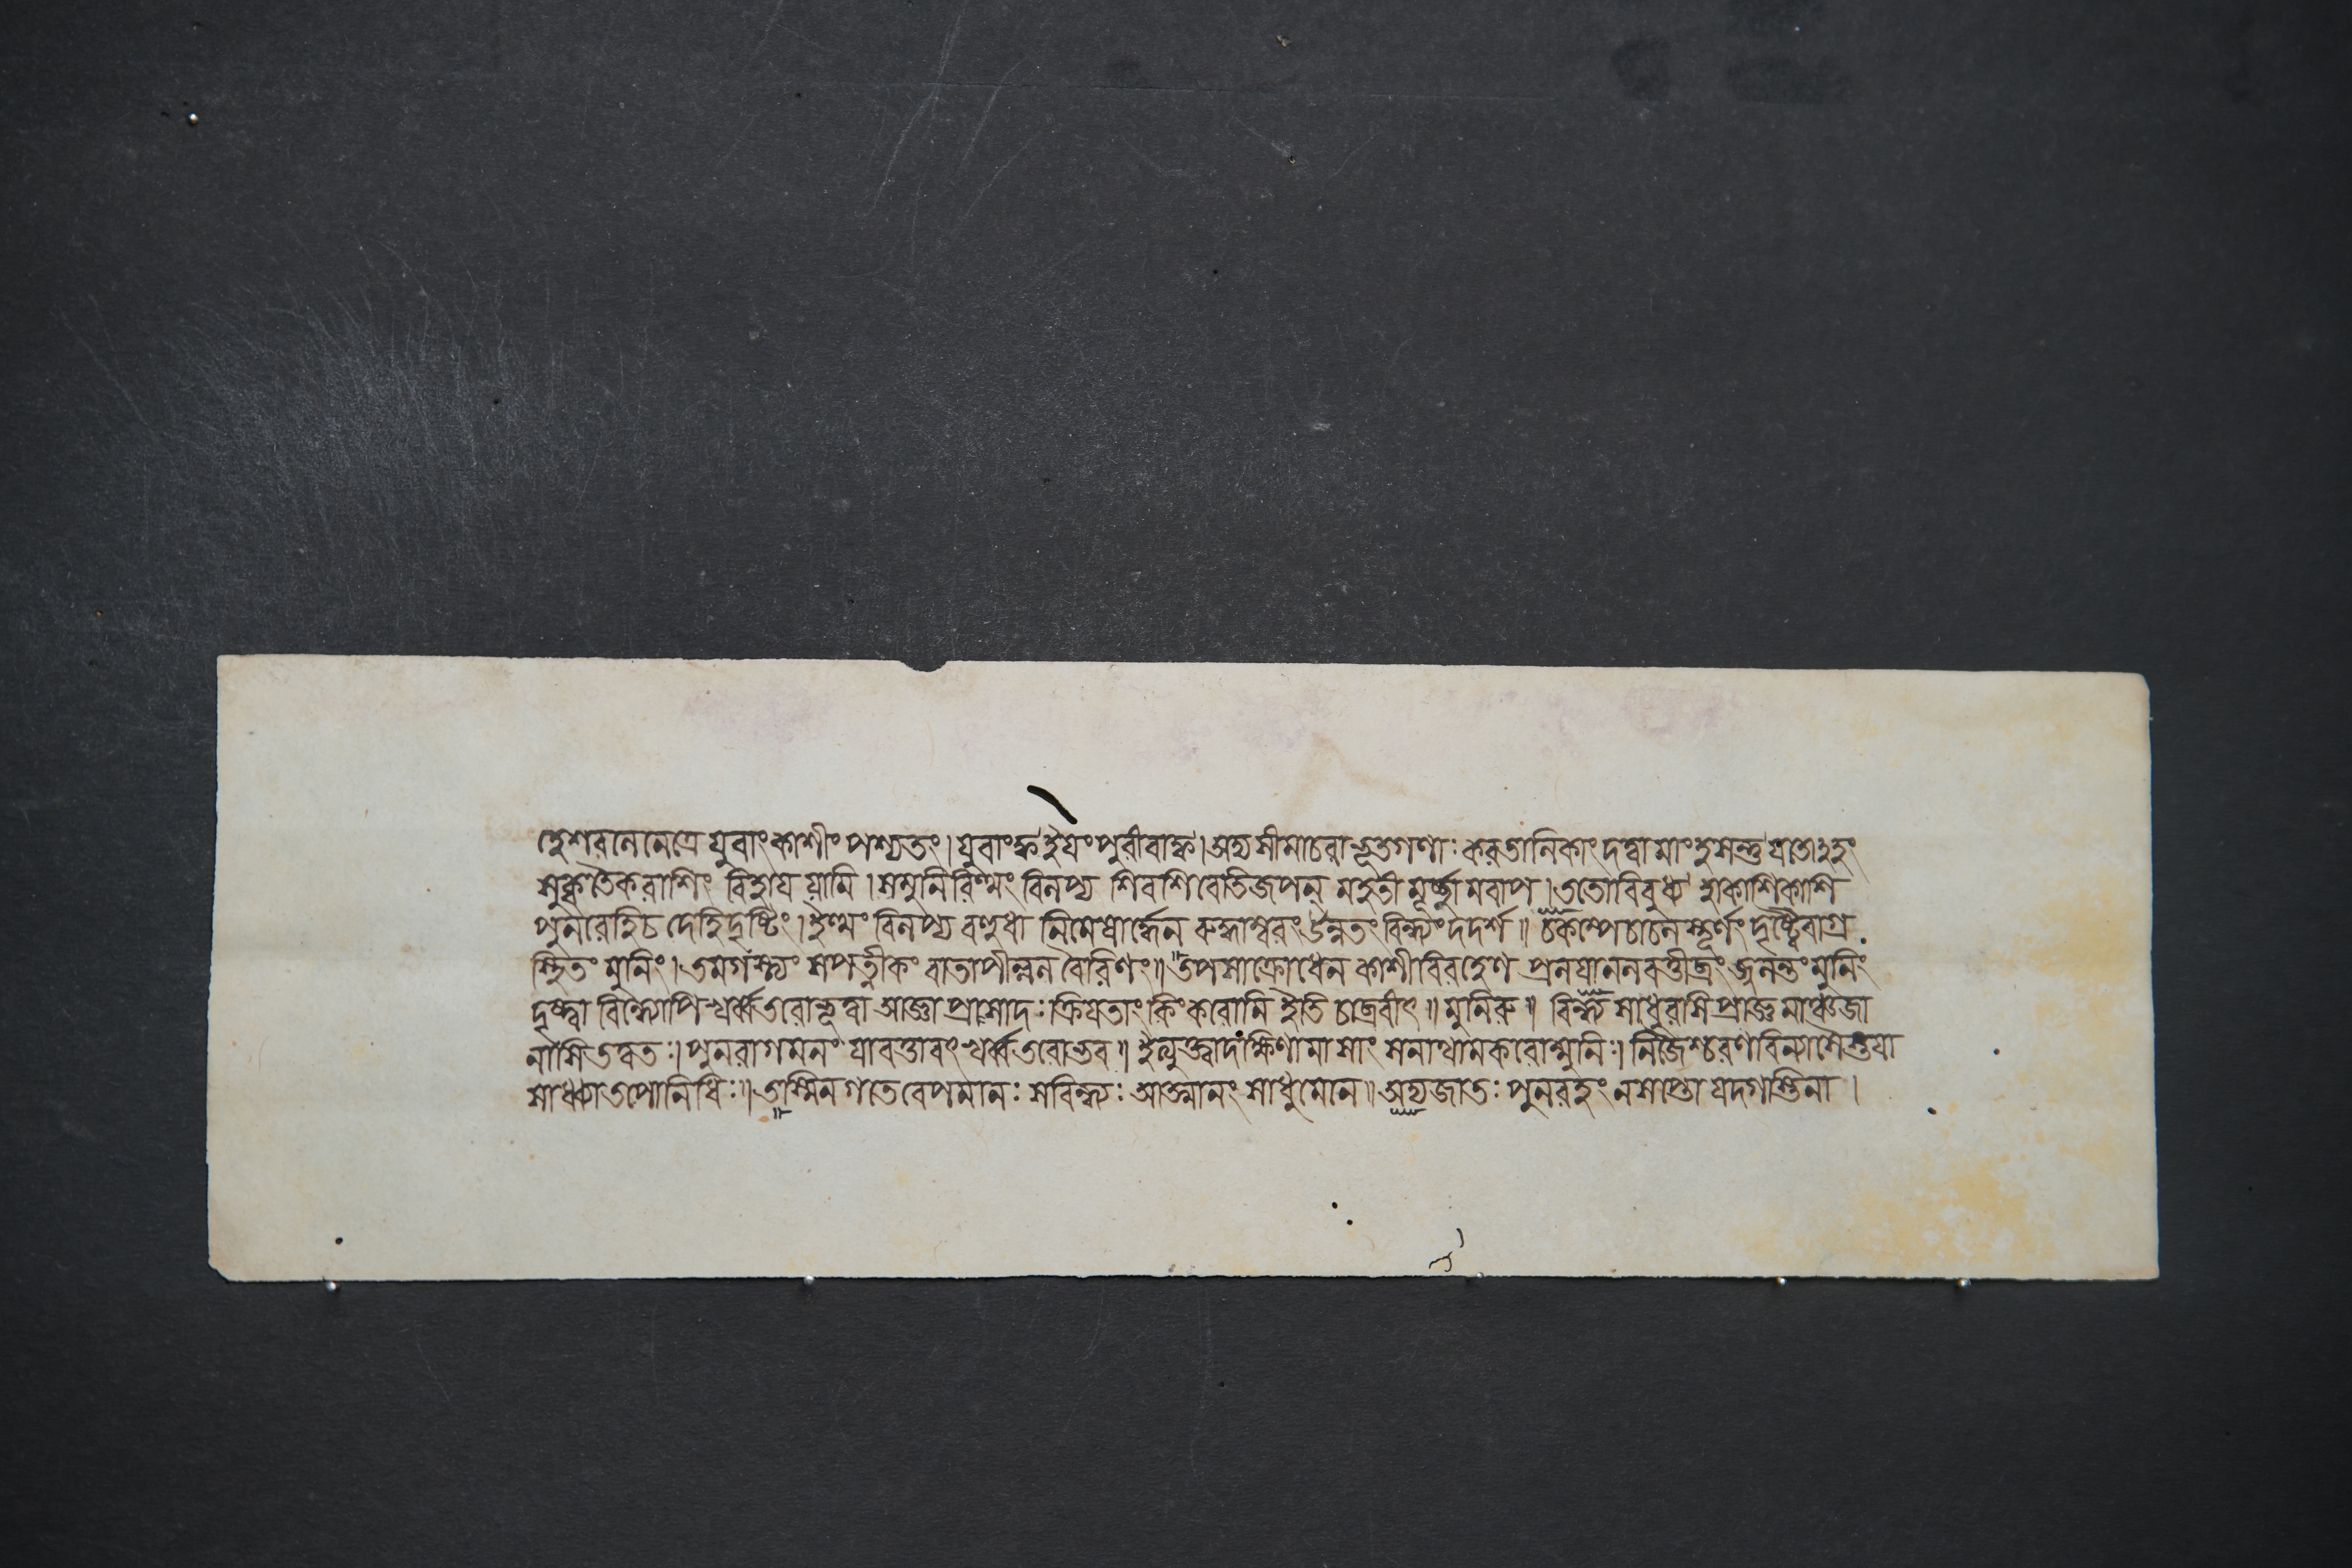 হেশরনে নেত্রে যুবাং কাশীং পশ্যতং। যুবাং ক্ব ইযং পুরী বা ক্ব। অদ্য সীমাচরা ভূতগণাঃ করতালিকাং দত্বা মাং হসন্তু যতোঽহং
সুকৃতৈকরাশিং বিহায যামি। স মুনিরিত্থং বিলপ্য শিবশিবেতি জপন্ মহতীং মূর্চ্ছামবাপ। ততো বিবুধ্য হা কাশি কাশি
পুনরেহি চ দেহি দৃষ্টিং। ইত্থং বিলপ্য বহুধা নিমেষার্দ্ধেন রুদ্ধাম্বরং উন্নতং বিন্ধ্যং দদর্শ॥ চকম্পে চাচলস্তূর্ণং দৃষ্ট্বৈবাগ্র
স্থিতং মুনিং। তমগস্ত্যং সপত্নীকং বাতাপীল্বল বৈরিণং॥ তপসা ক্রোধেন কাশীবিরহেণ প্রলযানলবত্তীব্রং জ্বলন্তং মুনিং
দৃষ্ট্বা বিন্ধ্যোপি খর্ব্বতরো ভূত্বা আজ্ঞা প্রাসাদঃ ক্রিযতাং কিং করোমি ইতি চাব্রবীৎ॥ মুনিরু॥ বিন্ধ্য সাধুরসি প্রাজ্ঞ মাঞ্চ জা
নাসি তত্বতঃ। পুনরাগমনং যাবত্তাবৎ খর্ব্বতরো ভব॥ ইত্যুক্ত্বা দক্ষিণামাশাং সনাথামকরোন্মুনিঃ। নিজৈশ্চরণবিন্যাসৈস্তযা
সাধ্ব্যা তপোনিধিঃ॥ তস্মিন গতে বেপমানঃ স বিন্ধ্যঃ আত্মানং সাধু মেনে॥ অদ্য জাতঃ পুনরহং ন শপ্তো যদগস্তিনা।